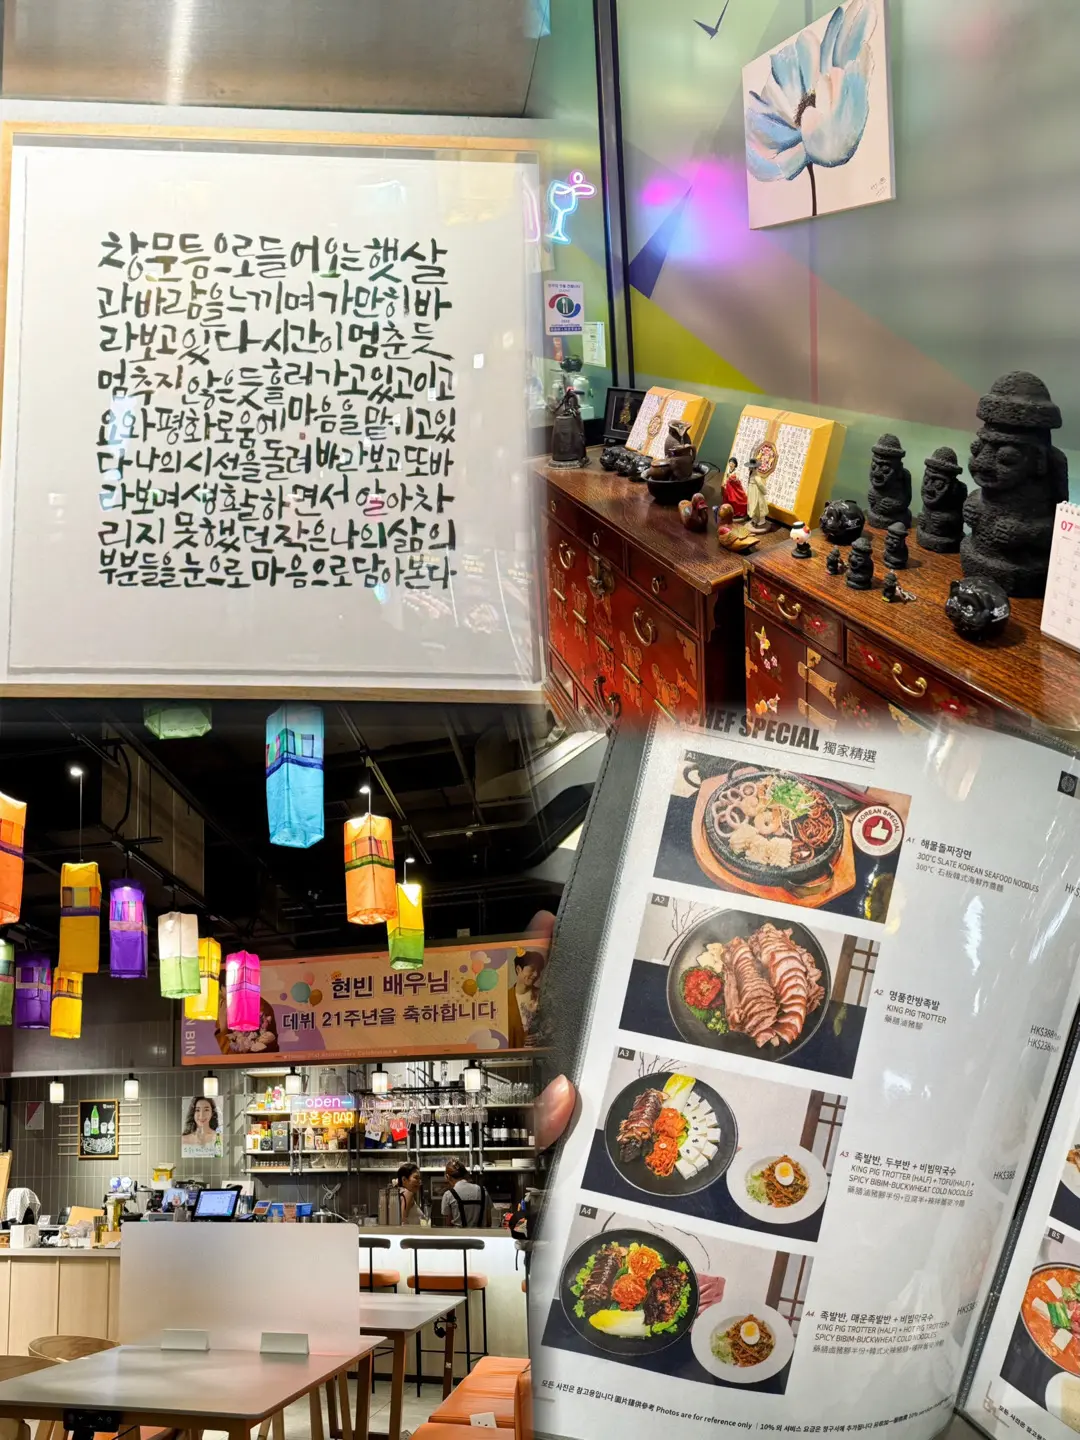 창문틈으로들어오는햇살
과바람을느끼며가만히바
라보고있다시간이멈춘듯
멈추지않은듯흘러가고있고이고
요와평화로움에마음을맡기고있
다나의시선을돌려바라보고또바
라보며생활하면서알아차
리지못했던작은나의삶의
부분들을눈으로마음으로담아본다
07
현빈 배우님
데뷔 21주년을 축하합니다
BIN
open
JJ혼술BAR
CHEF SPECIAL 獨家精選
KOREAN SPECIAL
A1 해물돌짜장면
300°C SLATE KOREAN SEAFOOD NOODLES
300°C 石板韓式海鮮炸醬麵
HK$
A2
A2 명품한방족발
KING PIG TROTTER
藥膳滷豬腳
HK$388
HK$238
A3
A3 족발반, 두부반 + 비빔막국수
KING PIG TROTTER (HALF) + TOFU(HALF) +
SPICY BIBIM-BUCKWHEAT COLD NOODLES
藥膳滷豬腳半份+豆腐半+辣拌蕎麥冷麵
HK$388
A4
A4 족발반, 매운족발반 + 비빔막국수
KING PIG TROTTER (HALF) + HOT PIG TROTTER+
SPICY BIBIM-BUCKWHEAT COLD NOODLES
HK$
B5
모든 사진은 참고용입니다 圖片謹供參考 Photos are for reference only | 10% 의 서비스 요금은 청구서에 추가됩니다